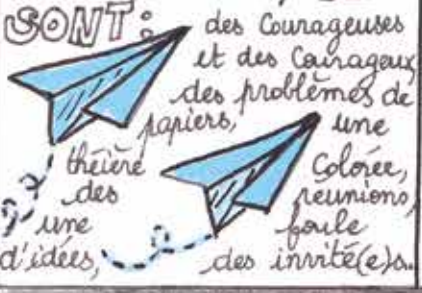 SONT: des Courageuses
et des Courageux,
des problèmes de
papiers, une
théière Colorée,
des réunions,
une foule
d'idées, des invité(e)s..